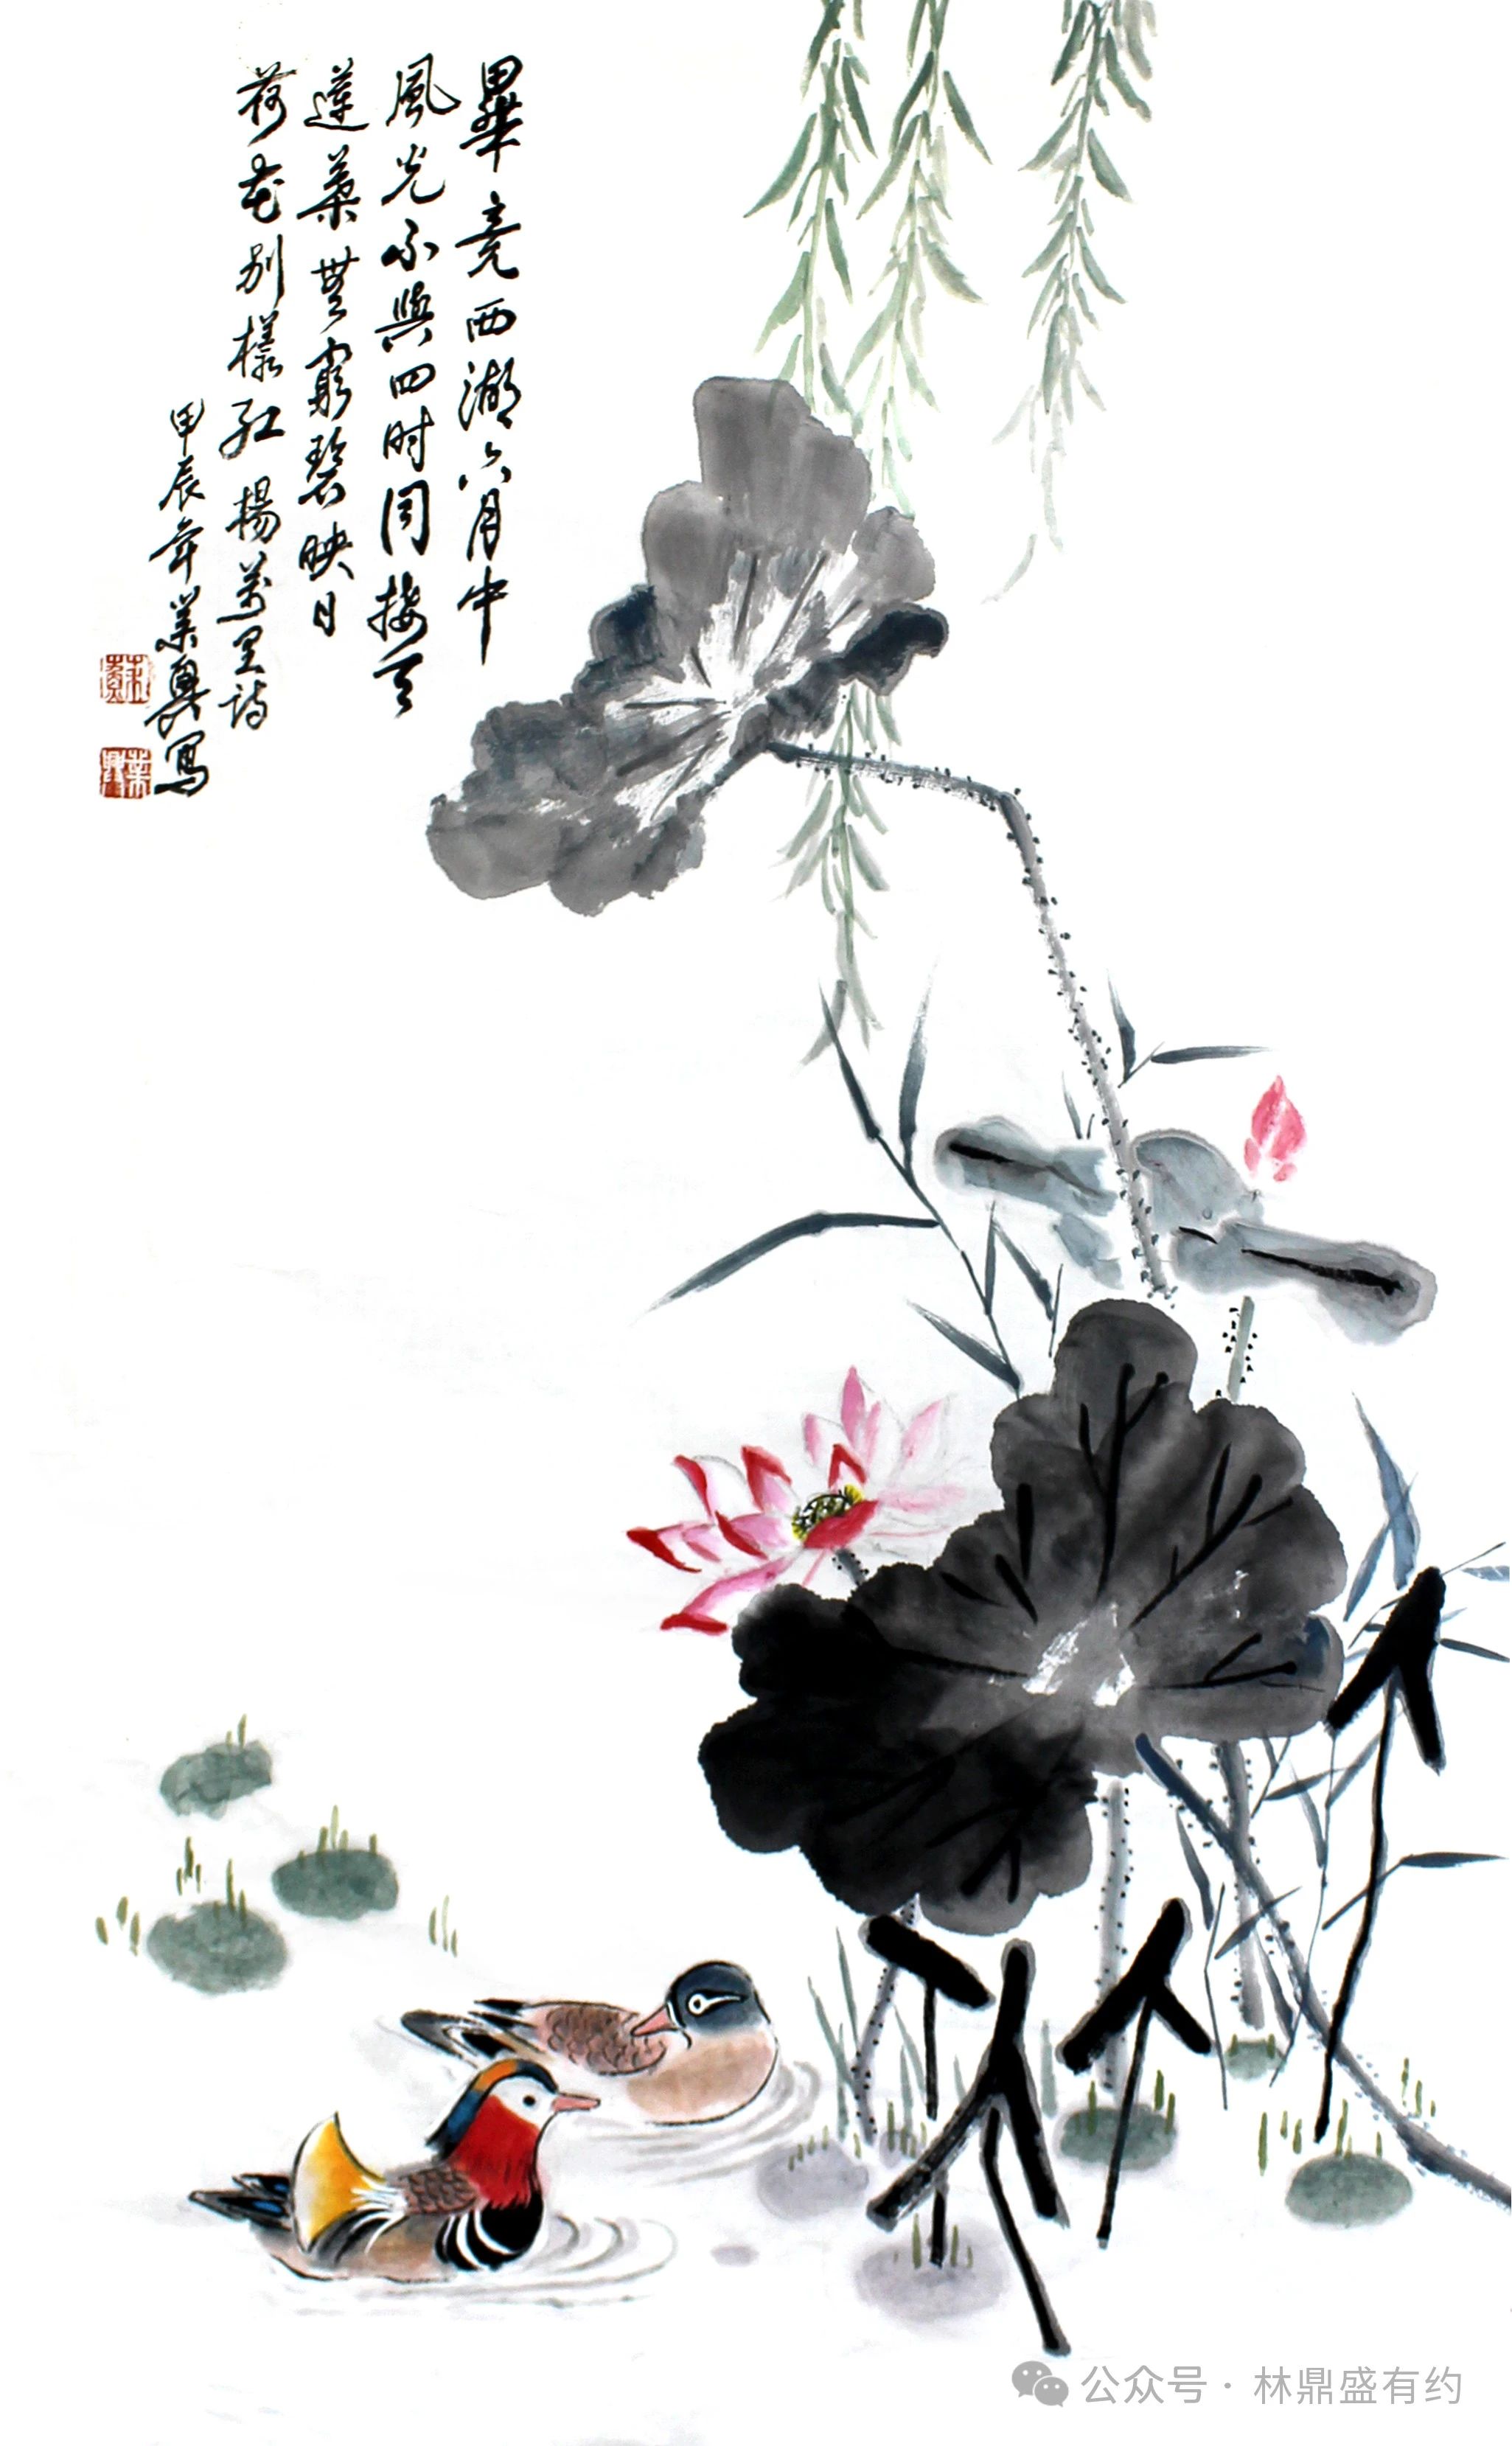 畢竟西湖六月中
風光不與四时同接天
蓮葉無窮碧映日
荷花别樣红楊萬里詩
甲辰年業興寫
公众号 · 林鼎盛有约